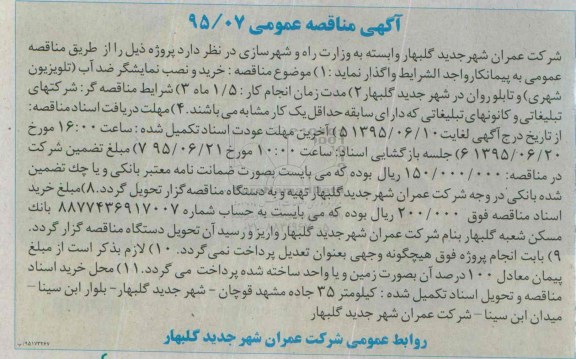 آگهی مناقصه عمومی ۹۵/۰۷
شرکت عمران شهر جدید گلبهار وابسته به وزارت راه و شهرسازی در نظر دارد پروژه ذیل را از طریق مناقصه
عمومی به پیمانکار واجد الشرایط واگذار نماید :۱) موضوع مناقصه : خرید و نصب نمایشگر ضد آب (تلویزیون
شهری) و تابلو روان در شهر جدید گلبهار ۲) مدت زمان انجام کار : ۱/۵ ماه ۳) شرایط مناقصه گر: شرکتهای
تبلیغاتی و کانونهای تبلیغاتی که دارای سابقه حداقل یک کار مشابه می باشند. ۴) مهلت دریافت اسناد مناقصه:
از تاریخ درج آگهی لغایت ۱۳۹۵/۰۶/۱۰ ۵) آخرین مهلت عودت اسناد تکمیل شده : ساعت ۱۶:۰۰ مورخ
۱۳۹۵/۰۶/۲۰ ۶) جلسه بازگشایی اسناد: ساعت ۱۰:۰۰ مورخ ۹۵/۰۶/۲۱ ۷) مبلغ تضمین شرکت
در مناقصه: ۱۵۰/۰۰۰/۰۰۰ ریال بوده که می بایست بصورت ضمانت نامه معتبر بانکی و یا چك تضمین
شده بانکی در وجه شرکت عمران شهر جدید گلبهار تهیه و به دستگاه مناقصه گزار تحویل گردد.۸)مبلغ خرید
اسناد مناقصه فوق ۲۰۰/۰۰۰ ریال بوده که می بایست به حساب شماره ۸۸۷۷۴۳۶۹۱۷۰۰۷ بانك
مسکن شعبه گلبهار بنام شرکت عمران شهر جدید گلبهار واریز و رسید آن تحویل دستگاه مناقصه گزار گردد.
۹) بابت انجام پروژه فوق هیچگونه وجهی بعنوان تعدیل پرداخت نمی گردد. ۱۰) لازم بذکر است از مبلغ
پیمان معادل ۱۰۰درصد آن بصورت زمین و یا واحد ساخته شده پرداخت می گردد.۱۱) محل خرید اسناد
مناقصه و تحویل اسناد تکمیل شده : کیلومتر ۳۵ جاده مشهد قوچان - شهر جدید گلبهار- بلوار ابن سینا –
میدان ابن سینا – شرکت عمران شهر جدید گلبهار
روابط عمومی شرکت عمران شهر جدید گلبهار